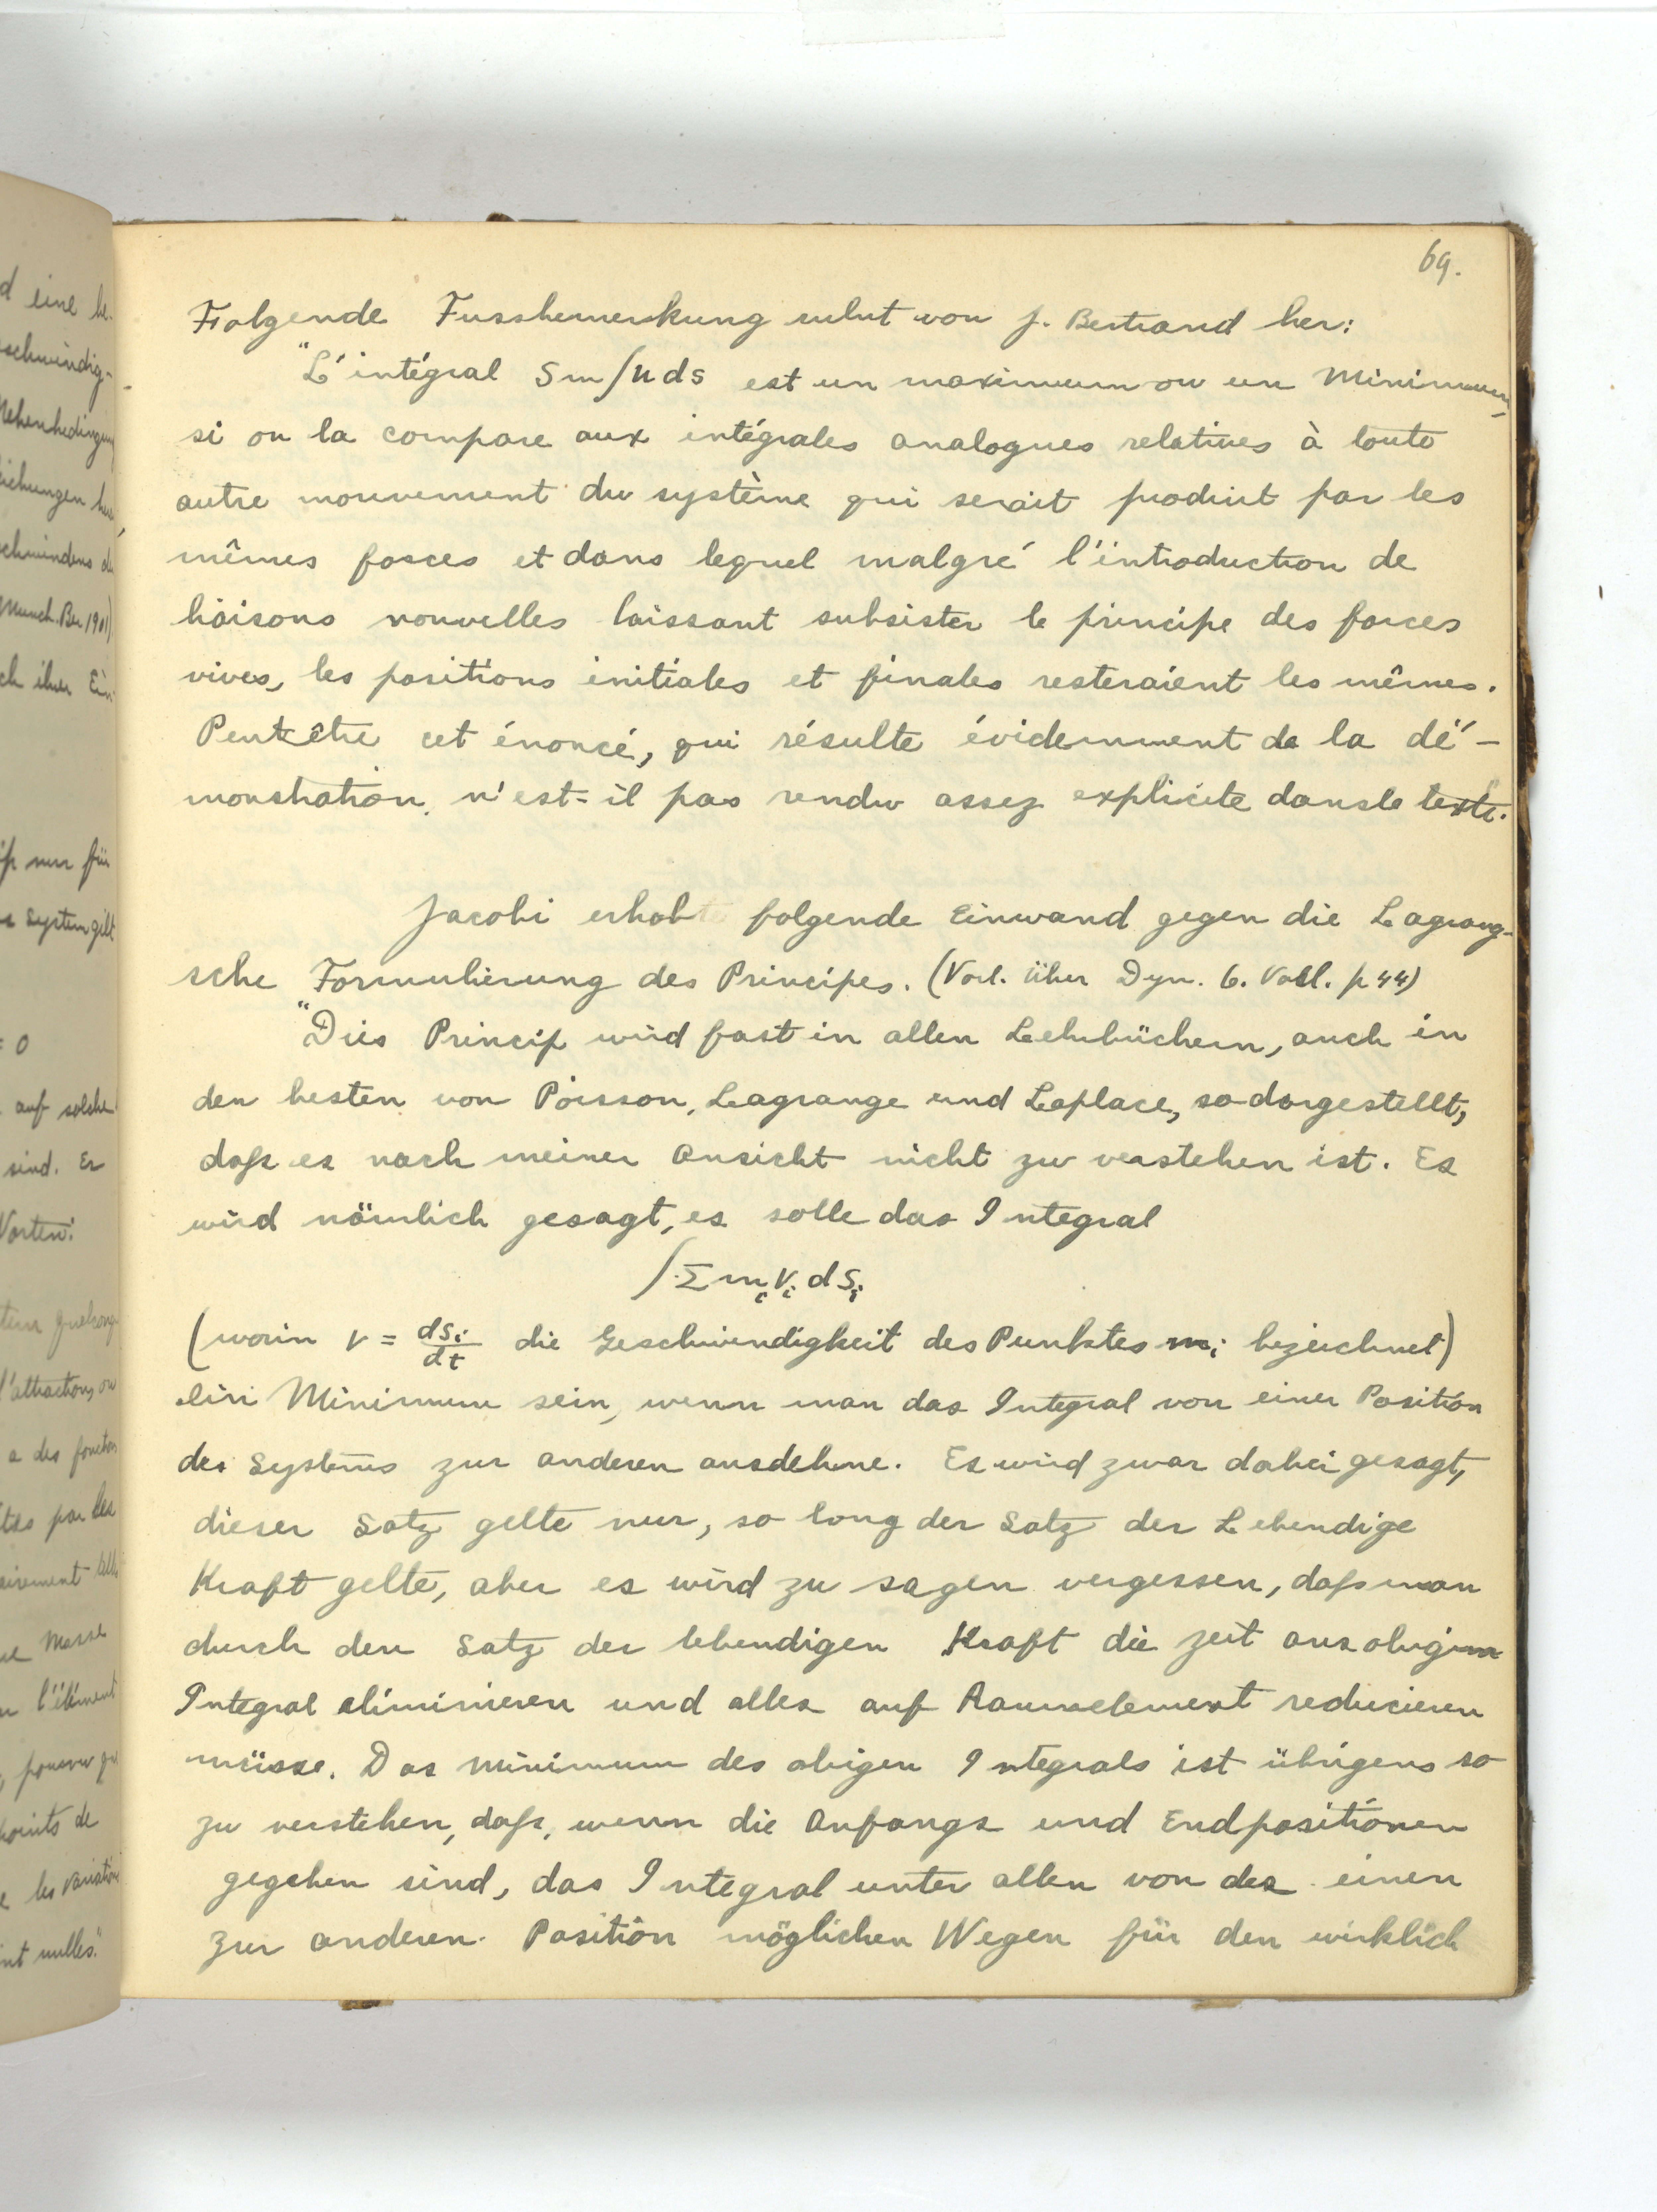 69.
Folgende Fussbemerkung ruhrt von J. Bertrand her:
"L'intégral Sm∫uds est un maximum ou un Minimum,
si on la compare aux intégrales analogues relatives à toute
autre mouvement du système qui serait produit par les
mêmes forces et dans lequel malgré l'introduction de
liaisons nouvelles laissant subsister le principe des forces
vives, les positions initiales et finales resteraient les mêmes.
Peut être cet énoncé, qui résulte évidemment de la dé-
monstration, n'est-il pas rendu assez explicite dans le texte.
Jacobi erhob folgende Einwand gegen die Lagrang-
sche Formulierung des Principes. (Vorl. über Dyn. 6. Vorl. p 44)
"Dies Princip wird fast in allen Lehrbüchern, auch in
den besten von Poisson, Lagrange und Laplace, so dargestellt,
daß es nach meiner Ansicht nicht zu verstehen ist. Es
wird nämlich gesagt, es solle das Integral
∫Σ mᵢ vᵢ dsᵢ
(worin v = dsᵢ/dt die Geschwindigkeit des Punktes mᵢ bezeichnet)
ein Minimum sein, wenn man das Integral von einer Position
des Systems zur anderen ausdehne. Es wird zwar dabei gesagt,
dieser Satz gelte nur, so lang der Satz der Lebendige
Kraft gelte, aber es wird zu sagen vergessen, daß man
durch den Satz der lebendigen Kraft die Zeit aus obigem
Integral eliminieren und alles auf Raumelement reducieren
müsse. Das Minimum des obigen Integrals ist übrigens so
zu verstehen, daß, wenn die Anfangs und Endpositionen
gegeben sind, das Integral unter allen von der einen
zur anderen Position möglichen Wegen für den wirklich